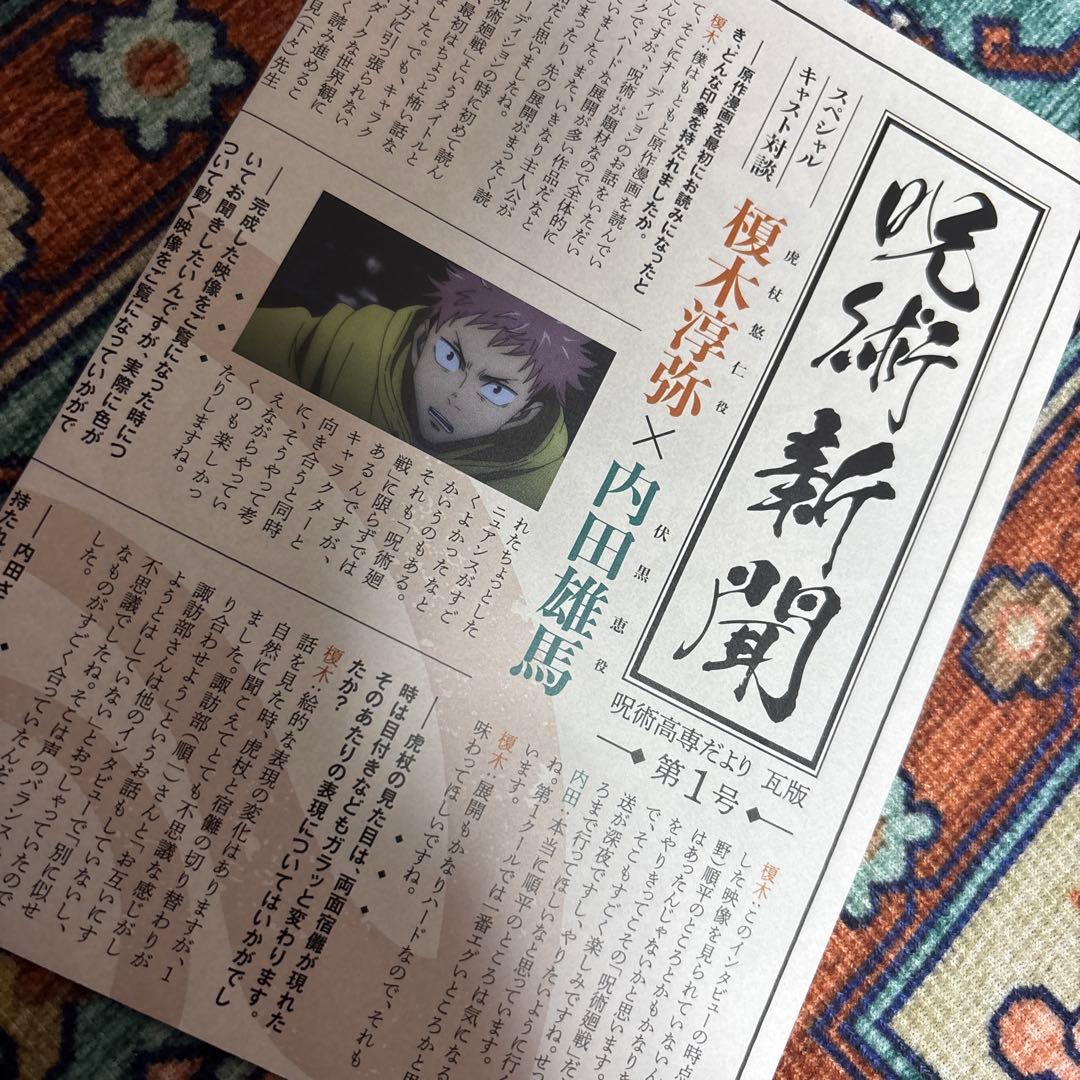 呪術新聞
呪術高専だより 瓦版
第1号
スペシャル
キャスト対談
虎杖悠仁役
榎木淳弥×内田雄馬
伏黒恵役
――原作漫画を最初にお読みになったと
き、どんな印象を持たれましたか。
榎木:僕はもともと原作漫画を読んでい
て、そこにオーディションのお話をいただい
んですが、“呪術”が題材なので全体的に
クで、ハードな展開が多い作品だなと
いました。また、いきなり主人公が
まったり、先の展開がまったく読
だと思いましたね。
ーディションの時に初めて読ん
呪術廻戦」というタイトルと
最初はちょっと怖い話な
ました。でも、キャラク
方に引っ張られない
ダークな世界観に
く読み進めるこ
見(下々)先生
――完成した映像をご覧になった時につ
いてお聞きしたいんですが、実際に色が
ついて動く映像をご覧になっていかがで
れたちょっとした
ニュアンスがすご
くよかったなと
かいうのもある。
それも「呪術廻
戦」に限らずでは
あるんですが、
キャラクターと
向き合うと同時
に、そうやって考
えながらやってい
くのも楽しかっ
たりしますね。
――内田さ
持たれ
榎木:このインタビューの時点
した映像を見られていないん
野)順平のところとかもかなり
はあったんじゃないかと思います。
をやりきってこその「呪術廻戦」だ
で、そこもすごく楽しみですね。せっ
送が深夜ですし、やりたいように
ろまで行ってほしいなと思っています。
内田:本当に順平のところは気になる
ね。第1クールでは一番エグいところかと思
います。
榎木:展開もかなりハードなので、それも
味わってほしいですね。
――虎杖の見た目は、両面宿儺が現れた
時は目付きなどもガラッと変わります。
そのあたりの表現についてはいかがでし
たか?
榎木:絵的な表現の変化はありますが、1
話を見た時、虎杖と宿儺の切り替わりが
自然に聞こえてとても不思議な感じがし
ました。諏訪部(順一)さんと「お互いにす
り合わせよう」というお話もしていないし、
諏訪部さんは他のインタビューで「別に似せ
ようとはしていない」とおっしゃっていたので
不思議でしたね。そこは声のバランス
なものがすごく合っていたんだ
した。